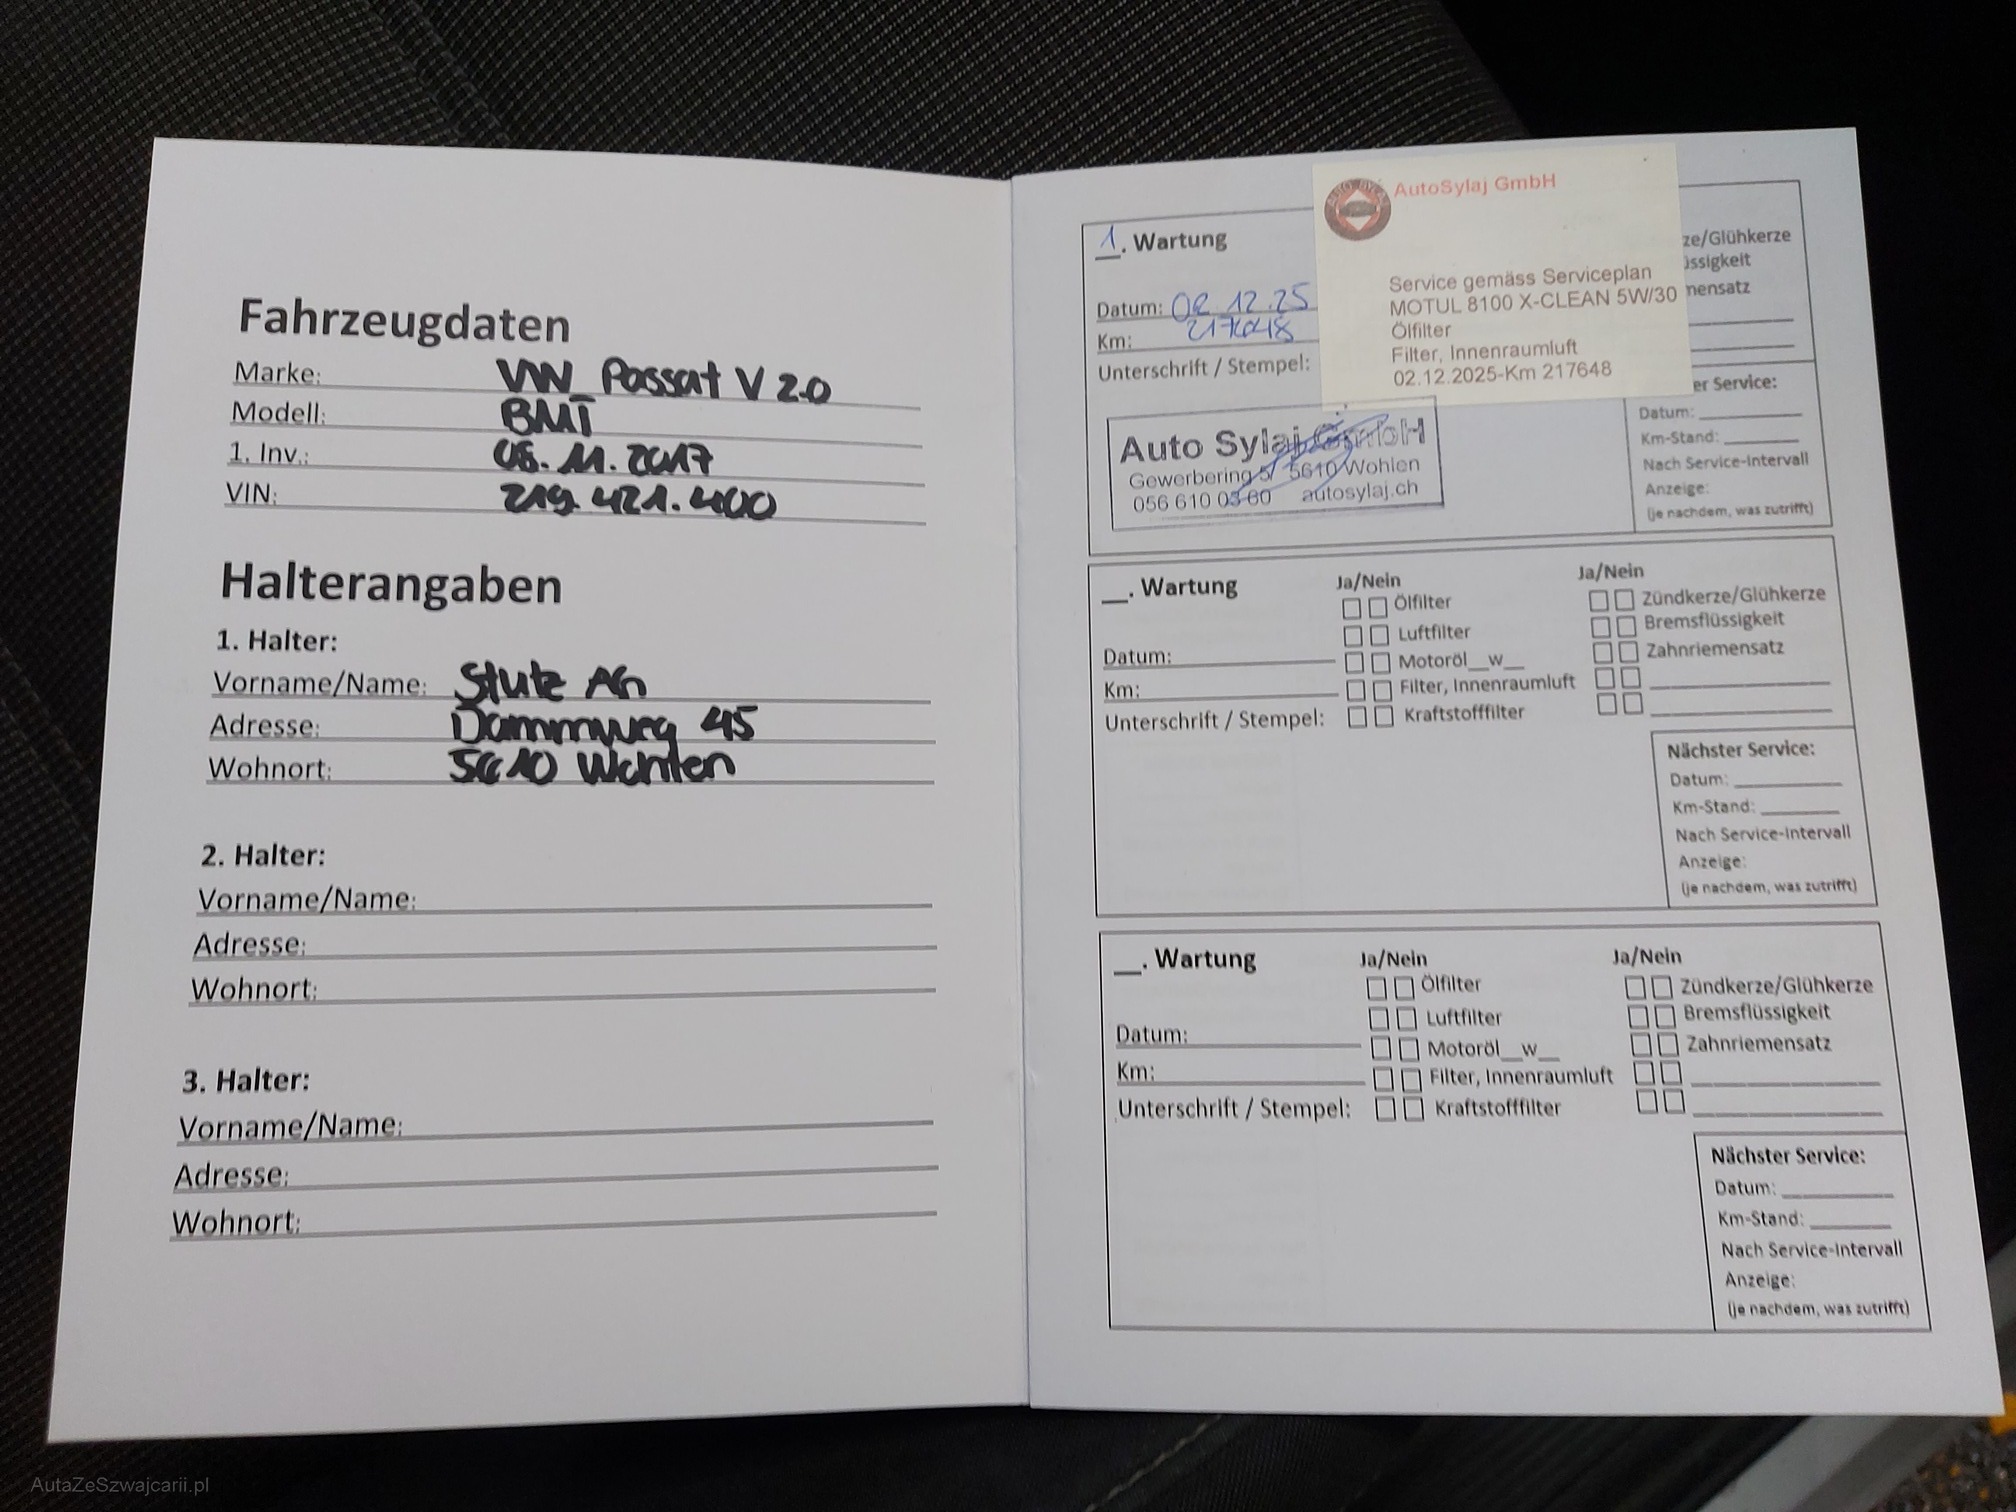 Fahrzeugdaten
Marke: VW Passat V 2.0
Modell: BMT
1. Inv.: 06.11.2017
VIN: 219.421.400
Halterangaben
1. Halter:
Vorname/Name: Stutz AG
Adresse: Dammweg 45
Wohnort: 5610 Wohlen
2. Halter:
Vorname/Name:
Adresse:
Wohnort:
3. Halter:
Vorname/Name:
Adresse:
Wohnort:
1. Wartung
Datum: 02.12.25
Km: 217648
Unterschrift / Stempel:
AutoSylaj GmbH
Service gemäss Serviceplan
MOTUL 8100 X-CLEAN 5W/30
Ölfilter
Filter, Innenraumluft
02.12.2025-Km 217648
ze/Glühkerze
ssigkeit
mensatz
Auto Sylaj GmbH
Gewerbering 5/ 5610 Wohlen
056 610 03 60 autosylaj.ch
er Service:
Datum:
Km-Stand:
Nach Service-Intervall
Anzeige:
(je nachdem, was zutrifft)
__. Wartung
Datum:
Km:
Unterschrift / Stempel:
Ja/Nein
Ölfilter
Luftfilter
Motoröl__w__
Filter, Innenraumluft
Kraftstofffilter
Ja/Nein
Zündkerze/Glühkerze
Bremsflüssigkeit
Zahnriemensatz
Nächster Service:
Datum:
Km-Stand:
Nach Service-Intervall
Anzeige:
(je nachdem, was zutrifft)
__. Wartung
Datum:
Km:
Unterschrift / Stempel:
Ja/Nein
Ölfilter
Luftfilter
Motoröl__w__
Filter, Innenraumluft
Kraftstofffilter
Ja/Nein
Zündkerze/Glühkerze
Bremsflüssigkeit
Zahnriemensatz
Nächster Service:
Datum:
Km-Stand:
Nach Service-Intervall
Anzeige:
(je nachdem, was zutrifft)
AutaZeSzwajcarii.pl